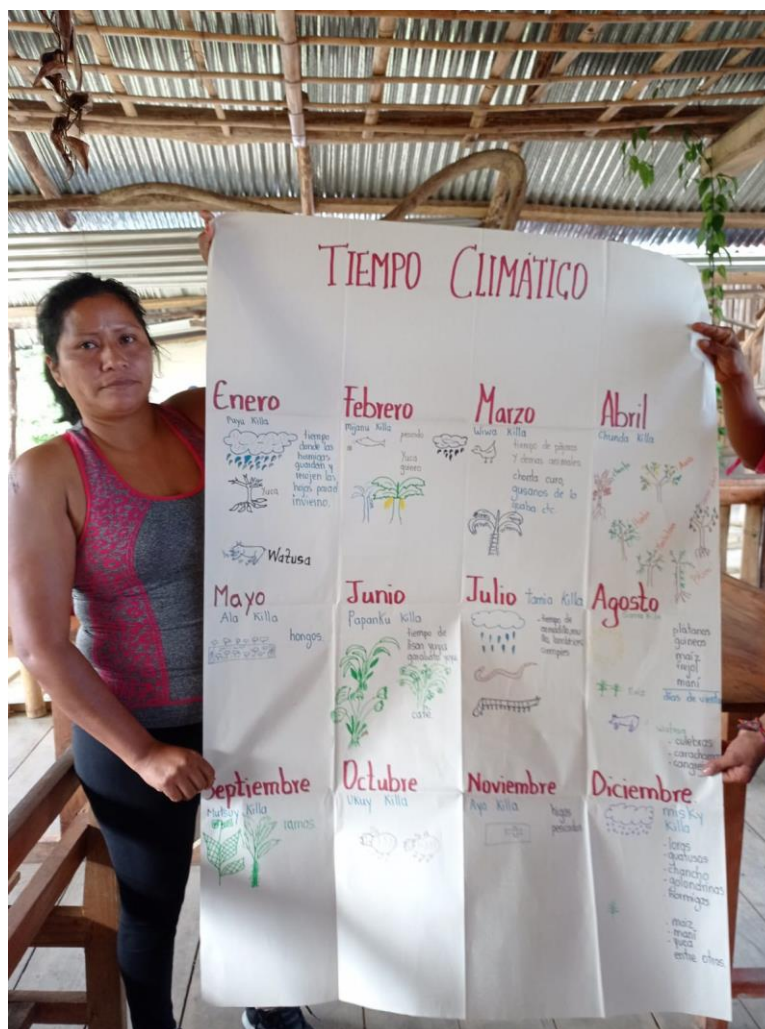 TIEMPO CLIMÁTICO
Enero
Puyu Killa
tiempo
donde las
hormigas
guardan y
mojen las
hojas para el
invierno.
Yuca
Watusa
Febrero
Mijanu Killa
pescado
Yuca
guineo
Marzo
Wiwa Killa
tiempo de pájaros
y demas animales
chonta curo,
gusanos de la
guaba etc
Abril
Chunda Killa
Mayo
Ala Killa
hongos
Junio
Papanku Killa
tiempo de
lisan yuyo
garabato yuyo
café
Julio Tamia Killa
tiempo de
lombrices
ciempies
Agosto
platanos
guineos
maíz
frejol
maní
días de viento
culebras
carachama
cangrejo
Septiembre
Mutsuy Killa
ramos
Octubre
Ukuy Killa
Noviembre
Aya Killa
higos
pescados
Diciembre
misky
Killa
- loras
- guatusas
- chancho
- golondrinas
hormigas
- maíz
- maní
- yuca
entre otros